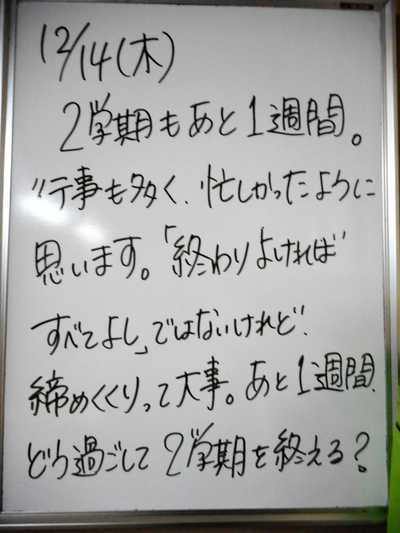 12/14(木)
2学期もあと1週間。
行事も多く、忙しかったように
思います。「終わりよければ
すべてよし」ではないけれど、
締めくくりって大事。あと1週間、
どう過ごして2学期を終える?